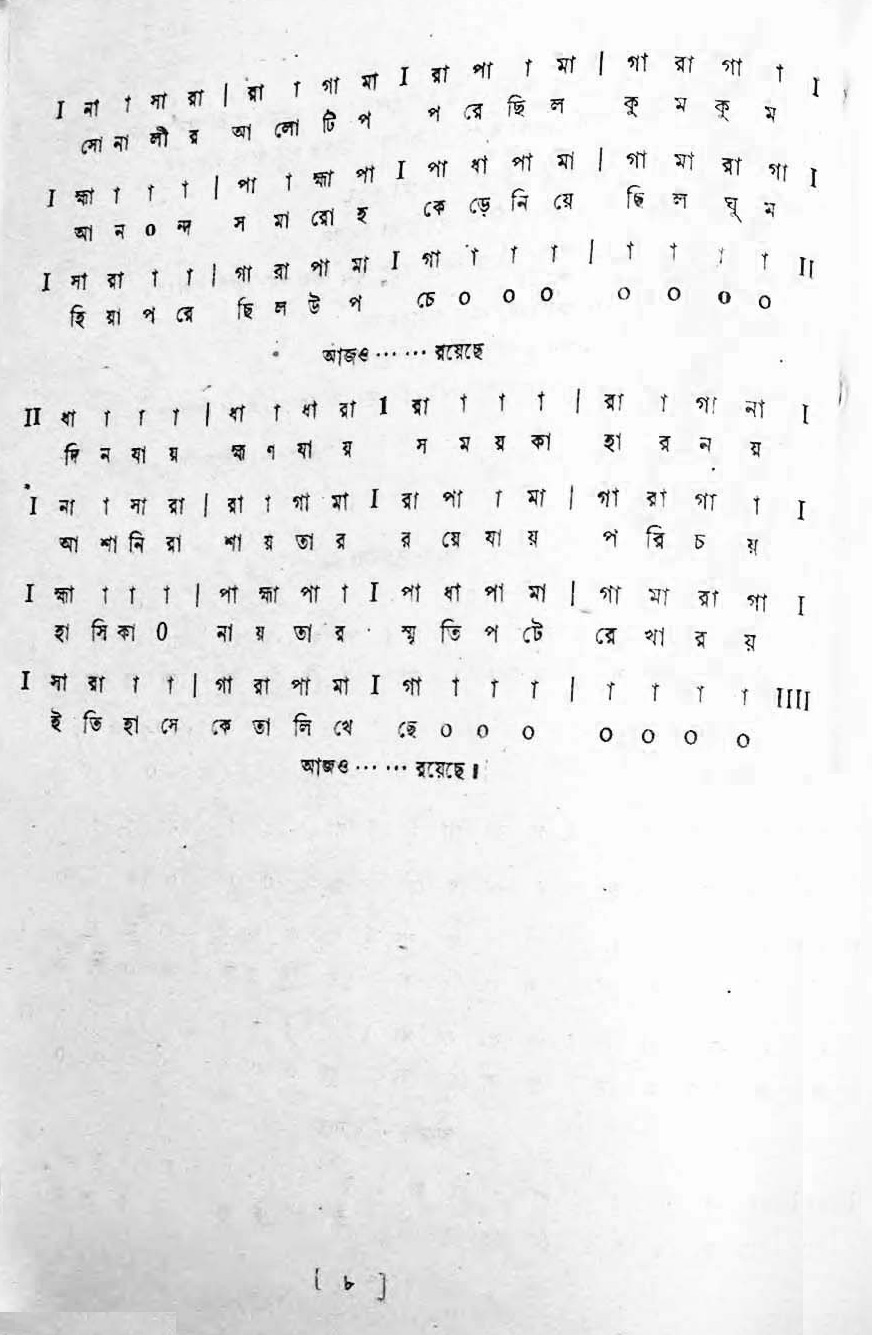 I না া সা রা | রা া গা মা I রা পা া মা | গা রা গা া I
সো না লী র আ লো টি প প রে ছি ল কু ম কু ম
I হ্মা া া া | পা া হ্মা পা I পা ধা পা মা | গা মা রা গা I
আ ন o ন্দ স মা রো হ কে ড়ে নি য়ে ছি ল ঘু ম
I সা রা া া | গা রা পা মা I গা া া া | া া া া II
হি য়া প রে ছি ল উ প চে o o o o o o o
আজও ... ... রয়েছে
II ধা া া া | ধা া ধা রা 1 রা া া া | রা া গা না I
দি ন যা য় ক্ষ ণ যা য় স ম য় কা হা র ন য়
I না া সা রা | রা া গা মা I রা পা া মা | গা রা গা া I
আ শা নি রা শা য় তা র র য়ে যা য় প রি চ য়
I হ্মা া া া | পা হ্মা পা া I পা ধা পা মা | গা মা রা গা I
হা সি কা 0 না য় তা র স্মৃ তি প টে রে খা র য়
I সা রা া া | গা রা পা মা I গা া া া | া া া া IIII
ই তি হা সে কে তা লি খে ছে o o o o o o o
আজও ... ... রয়েছে।
[ ৮ ]